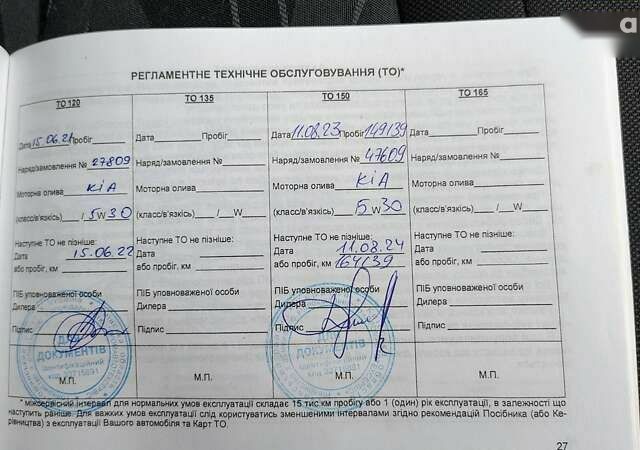 РЕГЛАМЕНТНЕ ТЕХНІЧНЕ ОБСЛУГОВУВАННЯ (ТО)*
ТО 120 ТО 135 ТО 150 ТО 165
Дата 15.06.21 Пробіг Дата Пробіг Дата 11.08.23 Пробіг 149139 Дата Пробіг
Наряд/замовлення № 27809 Наряд/замовлення № Наряд/замовлення № 47609 Наряд/замовлення №
Моторна олива KIA Моторна олива Моторна олива KIA Моторна олива
(класс/в'язкість) / 5W30 (класс/в'язкість) / W (класс/в'язкість) 5W30 (класс/в'язкість) / W
Наступне ТО не пізніше: Наступне ТО не пізніше: Наступне ТО не пізніше: Наступне ТО не пізніше:
Дата 15.06.22 Дата Дата 11.08.24 Дата
або пробіг, км або пробіг, км або пробіг, км 164139 або пробіг, км
ПІБ уповноваженої особи ПІБ уповноваженої особи ПІБ уповноваженої особи ПІБ уповноваженої особи
Дилера Дилера Дилера Дилера
Підпис Підпис Підпис Підпис
ДЛЯ ДОКУМЕНТІВ ДЛЯ ДОКУМЕНТІВ
М.П. М.П. М.П. М.П.
* міжсервісний інтервал для нормальних умов експлуатації складає 15 тис.км пробігу або 1 (один) рік експлуатації, в залежності що
наступить раніше. Для важких умов експлуатації слід користуватись зменшеними інтервалами згідно рекомендацій Посібника (або Ке-
рівництва) з експлуатації Вашого автомобіля та Карт ТО.
27